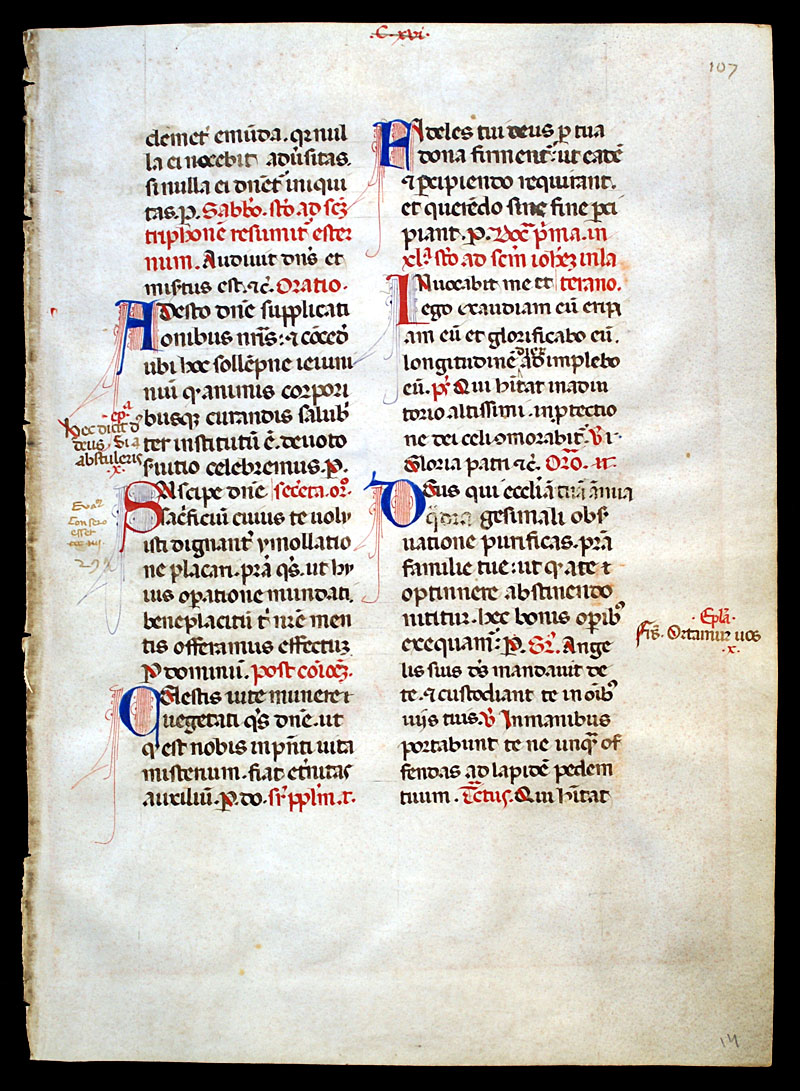 .C.xvi.
107
clemet̄ emūda. qr nul
la ei nocebit adūsitas.
si nulla ei dn̄et̄ iniqui
tas. P. Sabb̄o. st̄o ad sc̄ȝ
triphonē resumit̄ ester
num. Audiuit dn̄s et
misertus est. ⁊c̄. Oratio.
Adesto dn̄e supplicati
onibus nr̄is: ⁊ cōced̄
ubi hoc sollēpne ieiuni
niū q̄ animis corpori
busq; curandis salub̄
ter institutū ē. deuoto
s̄uitio celebremus. P.
Suscipe dn̄e secreta. or̄.
Sac̄ficiū cuius te uoly
isti dignant̄ ymollatio
ne placari. pr̄a q̄s. ut hy
ius op̄atione mundati.
beneplacitū t̄ nr̄e men
tis offeramus effectuȝ
P dominū. post cōioc̄ȝ.
Celestis uite munere ⁊
uegetati q̄s dn̄e. ut
q̄ est nobis in p̄n̄ti uita
misterium. fiat et̄nitatis
auxiliū. P. do. sr̄ pp̄l̄m. ⁊.
ep̄a
hec dicit d̄
deus. Si a
bstuleris
.x.
Fideles tui deus p̄ tua
dona firment̄: ut eadē
⁊ p̄cipiendo requirant.
et querēdo sine fine p̄ci
piant. P. Dōc̄ p̄ma. in
xl.ᵃ st̄o ad sc̄m ioh̄eȝ in la
Inuocabit me et terano.
ego exaudiam eū erip̄i
am eū et glorificabo eū.
longitudinē dieȝ adimplebo
eū. ps̄. Qui h̄itat in adiu
torio altissimi. in p̄tectio
ne dei celi cōmorabit̄. V̄.
Gloria patri ⁊c̄. Or̄o.
Deus qui ecc̄liā tuā annua
q̄dra gesimali obs̄
uatione purificas. pr̄a
familie tue: ut q̄ a te
optinere abstinendo
nititur. hoc bonis op̄ib̄
exequat̄: P. Gr̄. Ange
lis suis d̄s mandauit de
te. ⁊ custodiant te in oīb̄
uijs tuis. V̄ In manibus
portabunt te ne unq̄ of
fendas ad lapidē pedem
tuum. T̄ctus. Qui h̄itat
Epl̄a.
Fr̄s. Ortamur uos
.x.